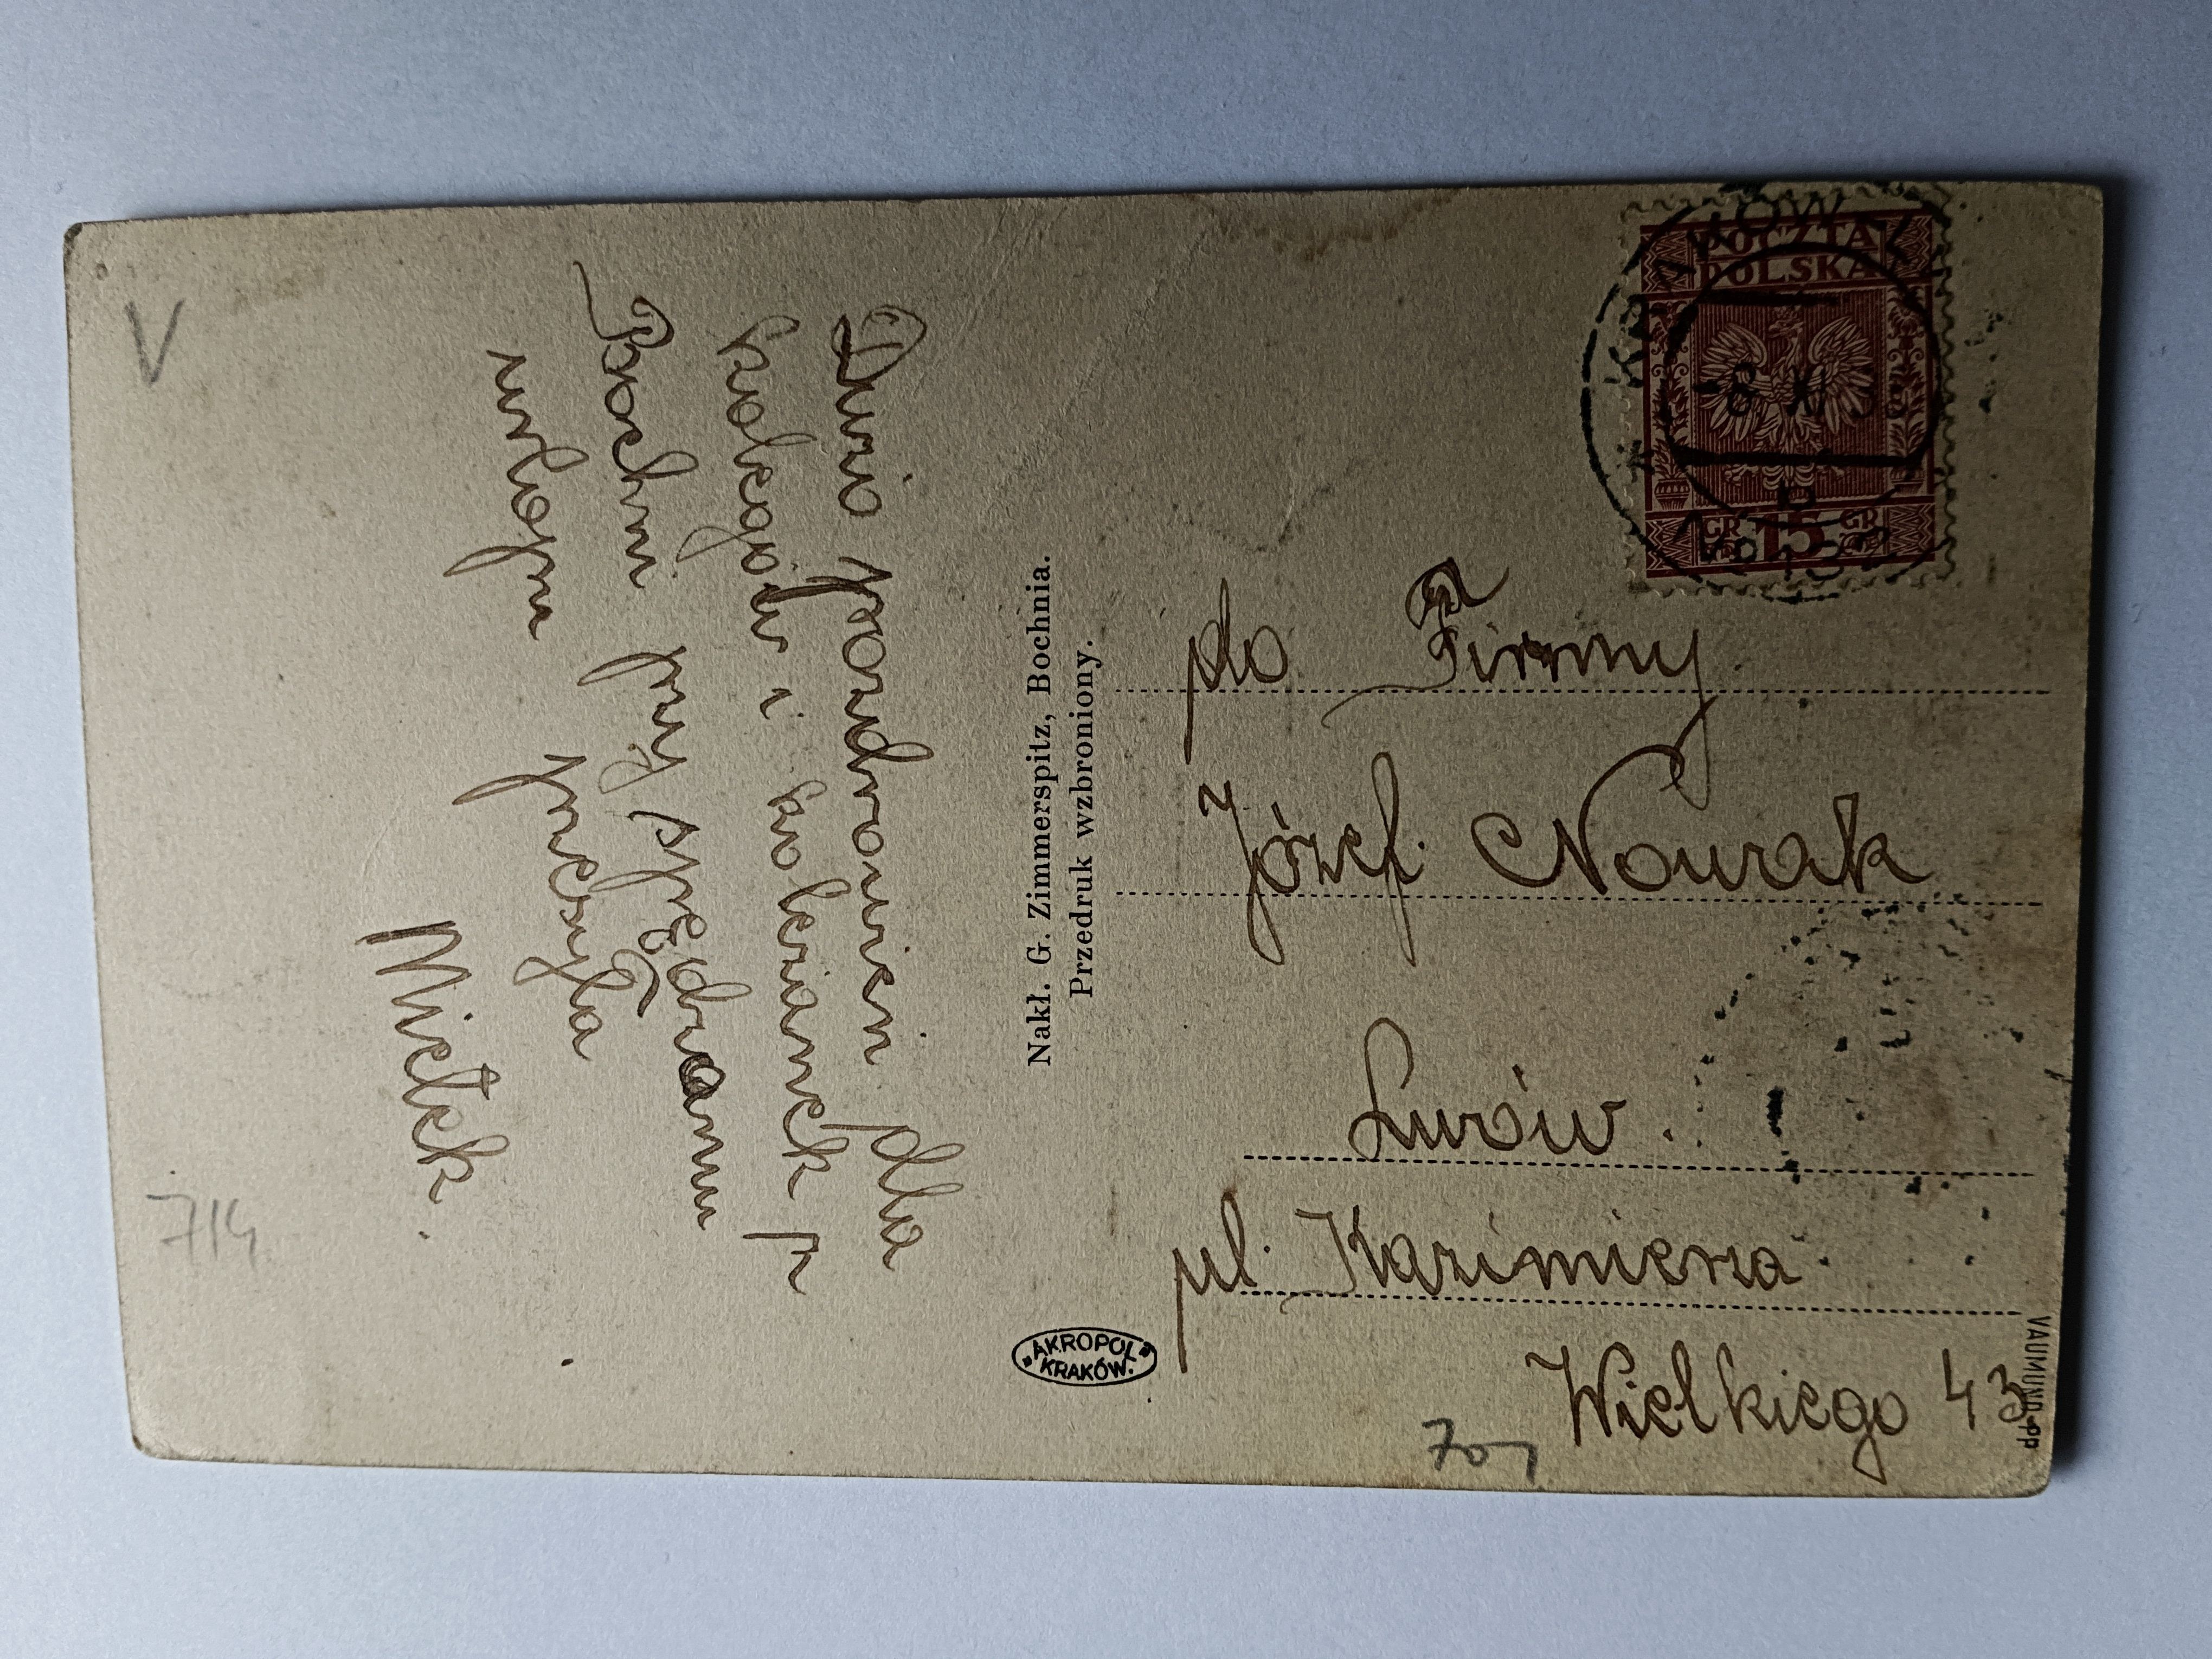 V
Dużo pozdrowień dla
kolegów i koleżanek z
Bochni przy spędzaniu
urlopu przesyła
Mietek.
714
Nakł. G. Zimmerspitz, Bochnia.
Przedruk wzbroniony.
"AKROPOL"
KRAKÓW.
POCZTA
POLSKA
GR 15 GR
KRAKÓW
-8 XI 3
do Firmy
Józef Nowak
Lwów.
pl. Kazimierza
Wielkiego 43
70,